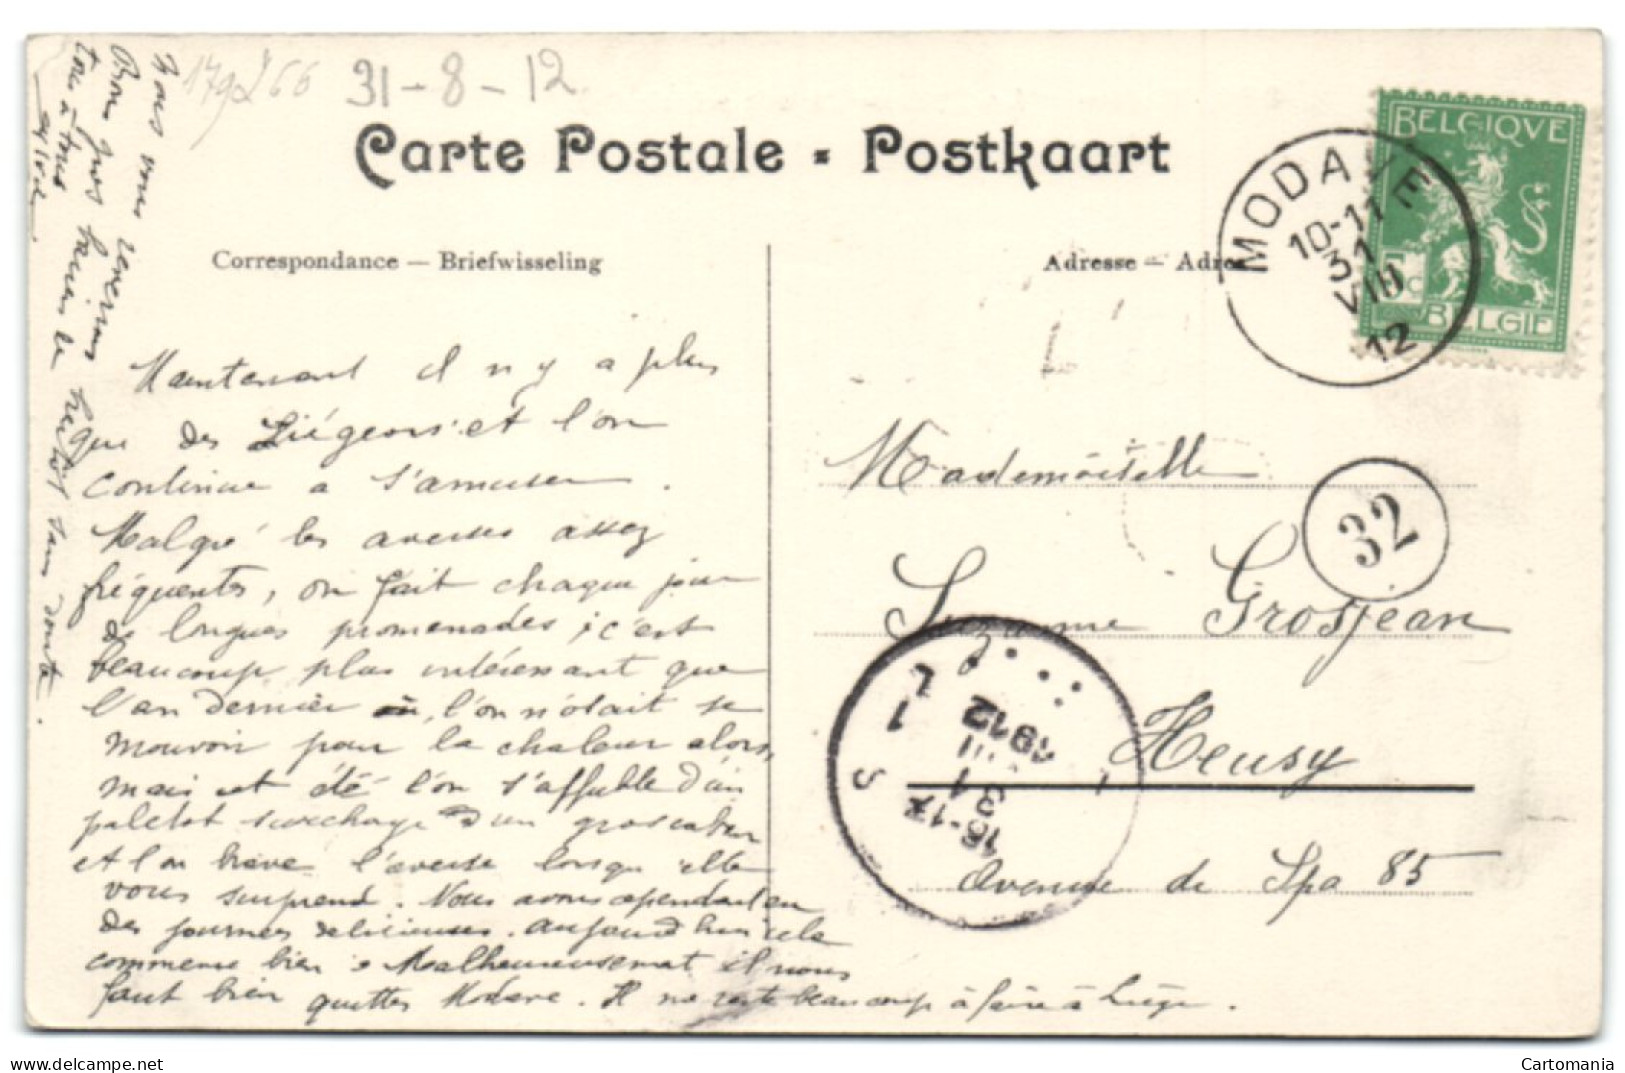 179 266
31-8-12
Carte Postale - Postkaart
Correspondance — Briefwisseling
Adresse — Adres
BELGIQVE
5 c
BELGIE
MODAVE
10-11
31
VIII
12
32
Maintenant il n'y a plus
que des Liégeois et l'on
continue a s'amuser.
Malgré les averses assez
fréquentes, on fait chaque jour
de longues promenades ; c'est
beaucoup plus intéressant que
l'an dernier où l'on n'osait se
mouvoir pour la chaleur alors,
mais cet été l'on s'affuble d'un
paletot d'un
et l'on brave l'averse lorsqu'elle
vous surprend. Nous avons cependant eu
des journées délicieuses. aujourd'hui cela
commence bien. Malheureusement il nous
faut bien quitter Modave. Il ne reste beaucoup à faire à Liège.
Nous vous reverrons
Bons gros baisers de
tous à tous
bientôt sans doute.
Mademoiselle
Suzanne Grosjean
Heusy
Avenue de Spa 85
16-17
31
VIII
1912
1
S
Cartomania